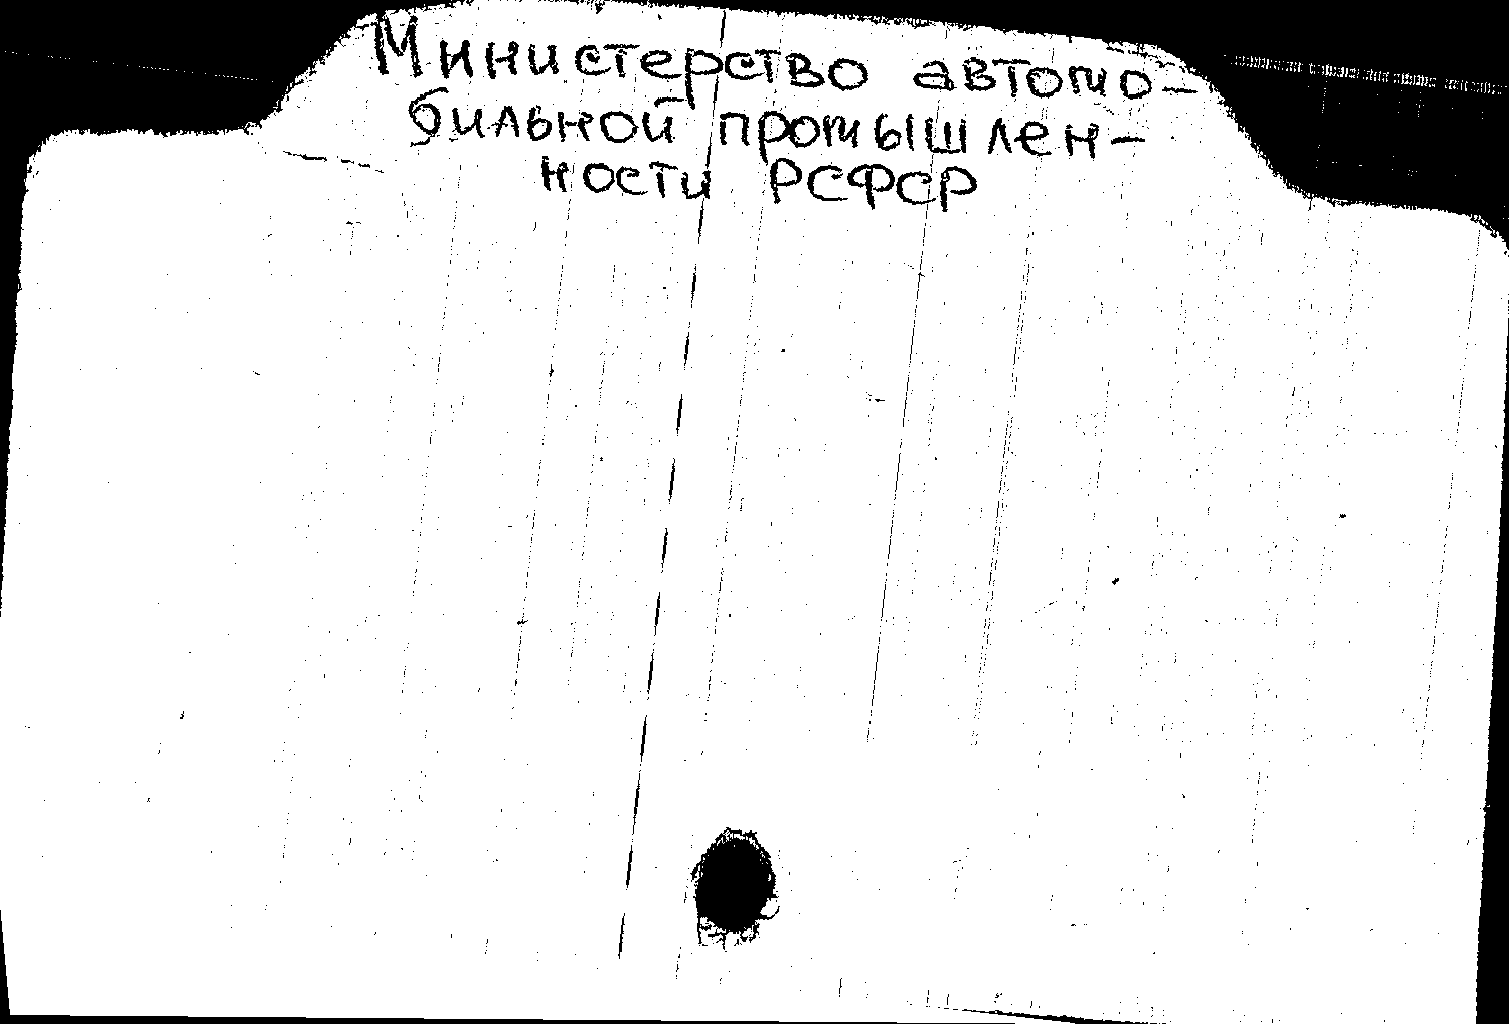 Министерство автомо-
бильной промышлен-
ности РСФСР